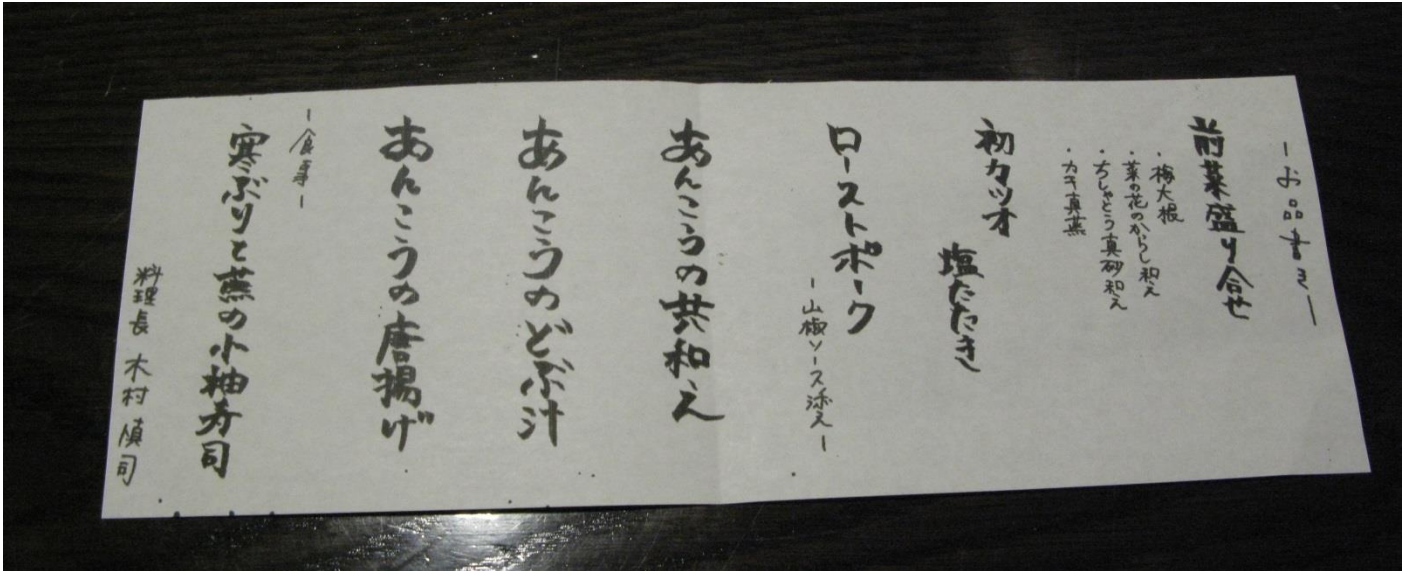 -お品書き-
前菜盛り合せ
・梅大根
・菜の花のからし和え
・ちしゃとう真砂和え
・カキ真蒸
初カツオ
塩たたき
ローストポーク
-山椒ソース添え-
あんこうの共和え
あんこうのどぶ汁
あんこうの唐揚げ
-食事-
寒ぶりと蕪の小袖寿司
料理長 木村 慎司